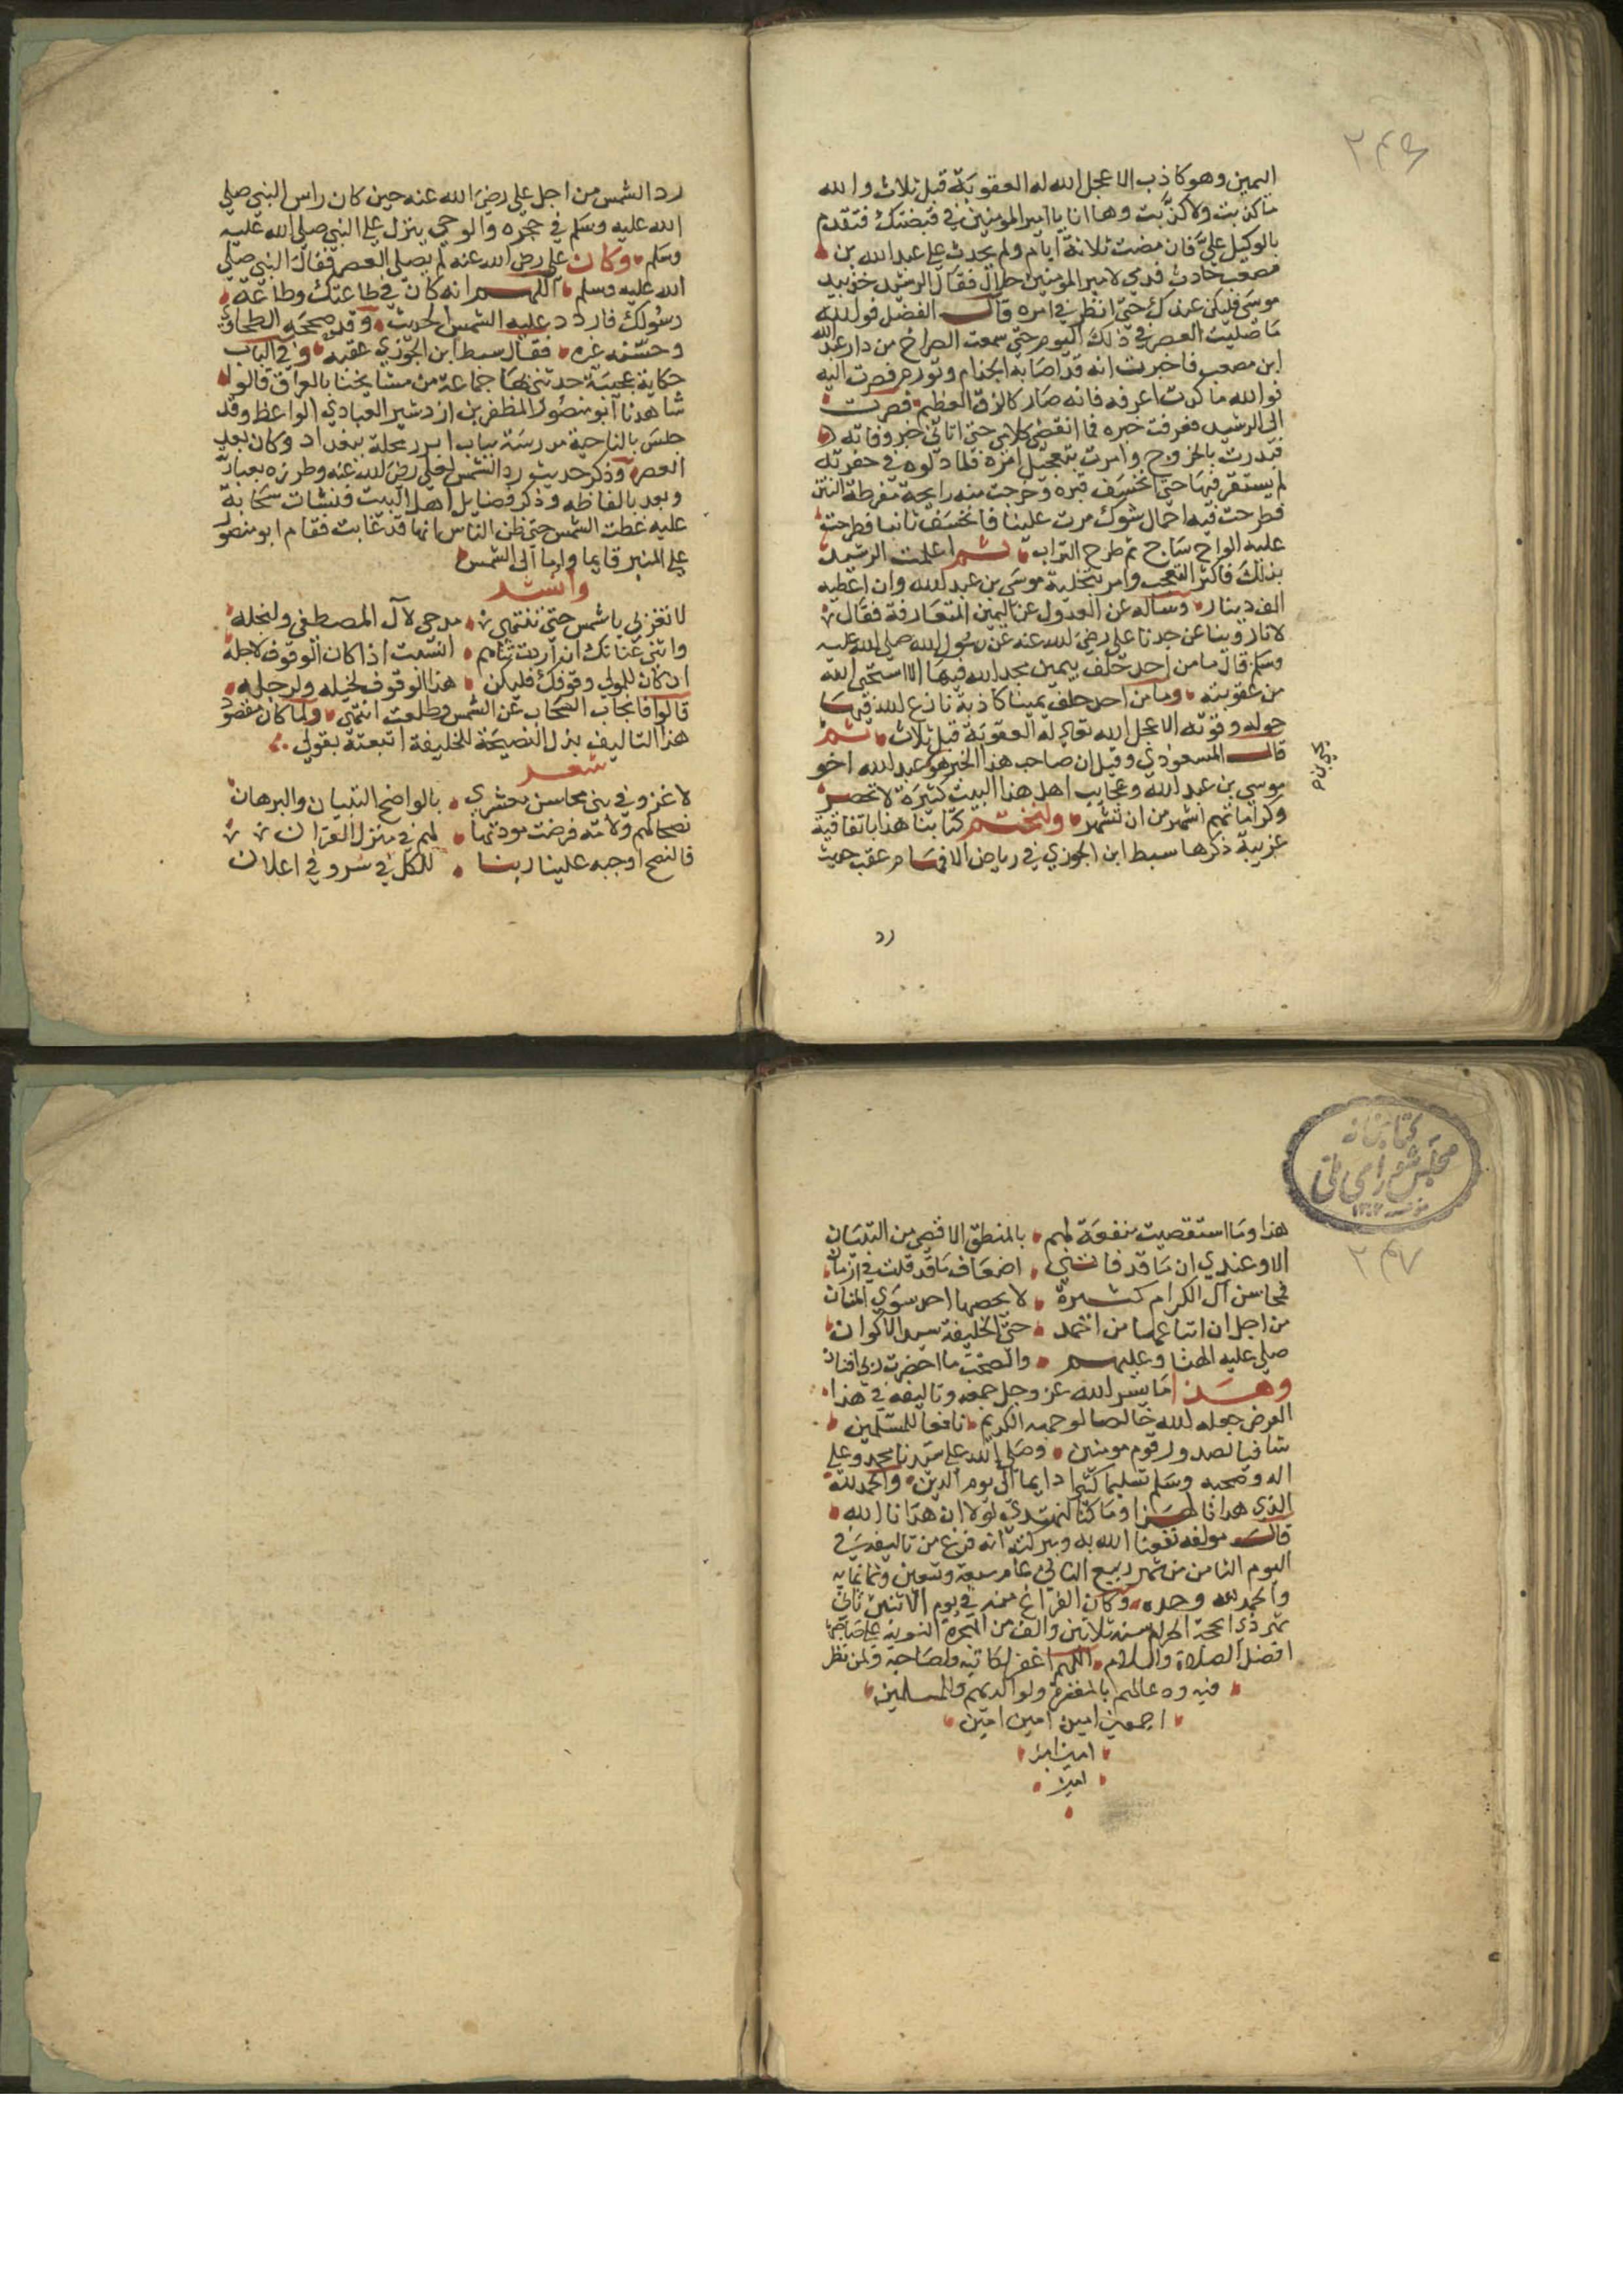 ٢٤٦
اليمين وهو كاذب الا عجل الله له العقوبة قبل ثلاث والله
ما كذبت ولا كذبت وها انا يا امير المومنين في قبضتك فتقدم
بالوكيل علي فان مضت ثلاثة ايام ولم يحدث علي عبد الله بن
مصعب حادث فدمي لامير المومنين حلال فقال الرشيد خذ بيد
موسى فليكن عندك حتى انظر في امره قال الفضل فوالله
ما صليت العصر في ذلك اليوم حتى سمعت الصراخ من دار عبد الله
ابن مصعب فاخبرت انه قد اصابه الجذام وتورم فصرت اليه
فوالله ما كدت اعرفه فانه صار كالزق العظيم فصرت
الى الرشيد فعرفت خبره فما انقضى كلامي حتى اتاني خبر وفاته
فبدرت بالخروج وامرت بتعجيل امره فلما دلوه في حفرته
لم يستقر فيها حتى انخسف قبره وخرجت منه رايحة مفرطة النتن
فطرحت فيه احمال شوك مرت علينا فانخسف ثانيا فطرحت
عليه الواح ساج ثم طرح التراب ثم اعلمت الرشيد
بذلك فاكثر التعجب وامر بتخلية موسى بن عبد الله وان اعطيه
الف دينار وساله عن العدول عن اليمين المتعارفة فقال
لانا روينا عن جدنا علي رضي الله عنه عن رسول الله صلى الله عليه
وسلم قال ما من احد حلف بيمين مجد الله فيها الا استحى الله
من عقوبته وما من احد حلف يمينا كاذبة نازع لله فيها
حوله وقوته الا عجل الله تعالى له العقوبة قبل ثلاث ثم
قال المسعوذي وقيل ان صاحب هذا الخبر هو عبد الله اخو
موسى بن عبد الله وعجايب اهل هذا البيت كثيرة لا تحصر
وكراماتهم اشهر من ان تشهر ولنختم كتابنا هذا باتفاقية
غريبة ذكرها سبط ابن الجوزي في رياض الافهام عقب حديث
رد
رد الشمس من اجل علي رضي الله عنه حين كان راس النبي صلي
الله عليه وسلم في حجره والوحي ينزل علي النبي صلى الله عليه
وسلم وكان علي رضي الله عنه لم يصلي العصر فقال النبي صلى
الله عليه وسلم اللهم انه كان في طاعتك وطاعة
رسولك فاردد عليه الشمس الحديث وقد صححه الطحاوي
وحسنه غيره فقال سبط ابن الجوزي عقبه وفي الباب
حكاية عجيبة حدثني بها جماعة من مشايخنا بالعراق قالوا
شاهدنا ابو منصور المظفر بن ازدشير العبادي الواعظ وقد
جلس بالناجية مدرسة بباب ابرز محلة ببغداد وكان بعد
العصر وذكر حديث رد الشمس لعلي رضي الله عنه وطرزه بعبارته
وبعد بالفاظه وذكر فضايل اهل البيت فنشات سحابة
عليه غطت الشمس حتى ظن الناس انها قد غابت فقام ابو منصور
علي المنبر قايما واوما الى الشمس
وانشد
لا تغربي يا شمس حتى تنتهي مدحي لآل المصطفى ولنجله
واثني عنانك ان اردت ثناهم انسيت اذا كان الوقوف لاجله
ان كان للمولى وقوفك فليكن هذا الوقوف لخيله ولرجله
قالوا فانجاب السحاب عن الشمس وطلعت انتهى ولما كان مقصود
هذا التاليف بذل النصيحة للخليفة اتبعته بقولي
شعر
لا غرو في بثي محاسن معشري بالواضح التبيان والبرهان
نصحا لهم ولامة فرضت مودتها لهم في منزل القران
فالنصح اوجبه علينا ربنا للكل في سر وفي اعلان
كتابخانه
مجلس شوراى ملى
٢٤٧
هذا وما استقصيت منفعة لهم بالمنطق الاقصى من التبيان
الا وعندي ان ما قد فاتني اضعاف ما قد قلت في ازمان
فمحاسن آل الكرام كثيرة لا يحصها احد سوى المنان
من اجل ان اتباعها من احمد حتى الخليفة سيد الاكوان
صلى عليه الهنا وعليهم والصحب ما اخضرت ربى افنان
وهذا ما يسر الله عز وجل جمعه وتاليفه في هذا
الغرض جعله الله خالصا لوجهه الكريم نافعا للمسلمين
شافيا لصدور قوم مومنين وصلى الله على سيدنا محمد وعلي
اله وصحبه وسلم تسليما كثيرا دايما الى يوم الدين والحمد لله
الذي هدانا لهذا وما كنا لنهتدي لولا ان هدانا الله
قال مولفه نفعنا الله به وببركته انه فرغ من تاليفه في
اليوم الثامن من شهر ربيع الثاني عام سبعة وتسعين وثمانمايه
والحمد لله وحده وكان الفراغ منه في يوم الاثنين ثاني
شهر ذي الحجة الحرام سنه ثلاثين والف من الهجرة النبوية على صاحبها
افضل الصلاة والسلام اللهم اغفر لكاتبه ولصاحبه ولمن نظر
فيه ودعا لهم بالمغفرة ولوالديهم وللمسلمين
اجمعين امين امين امين
امين امين
امين